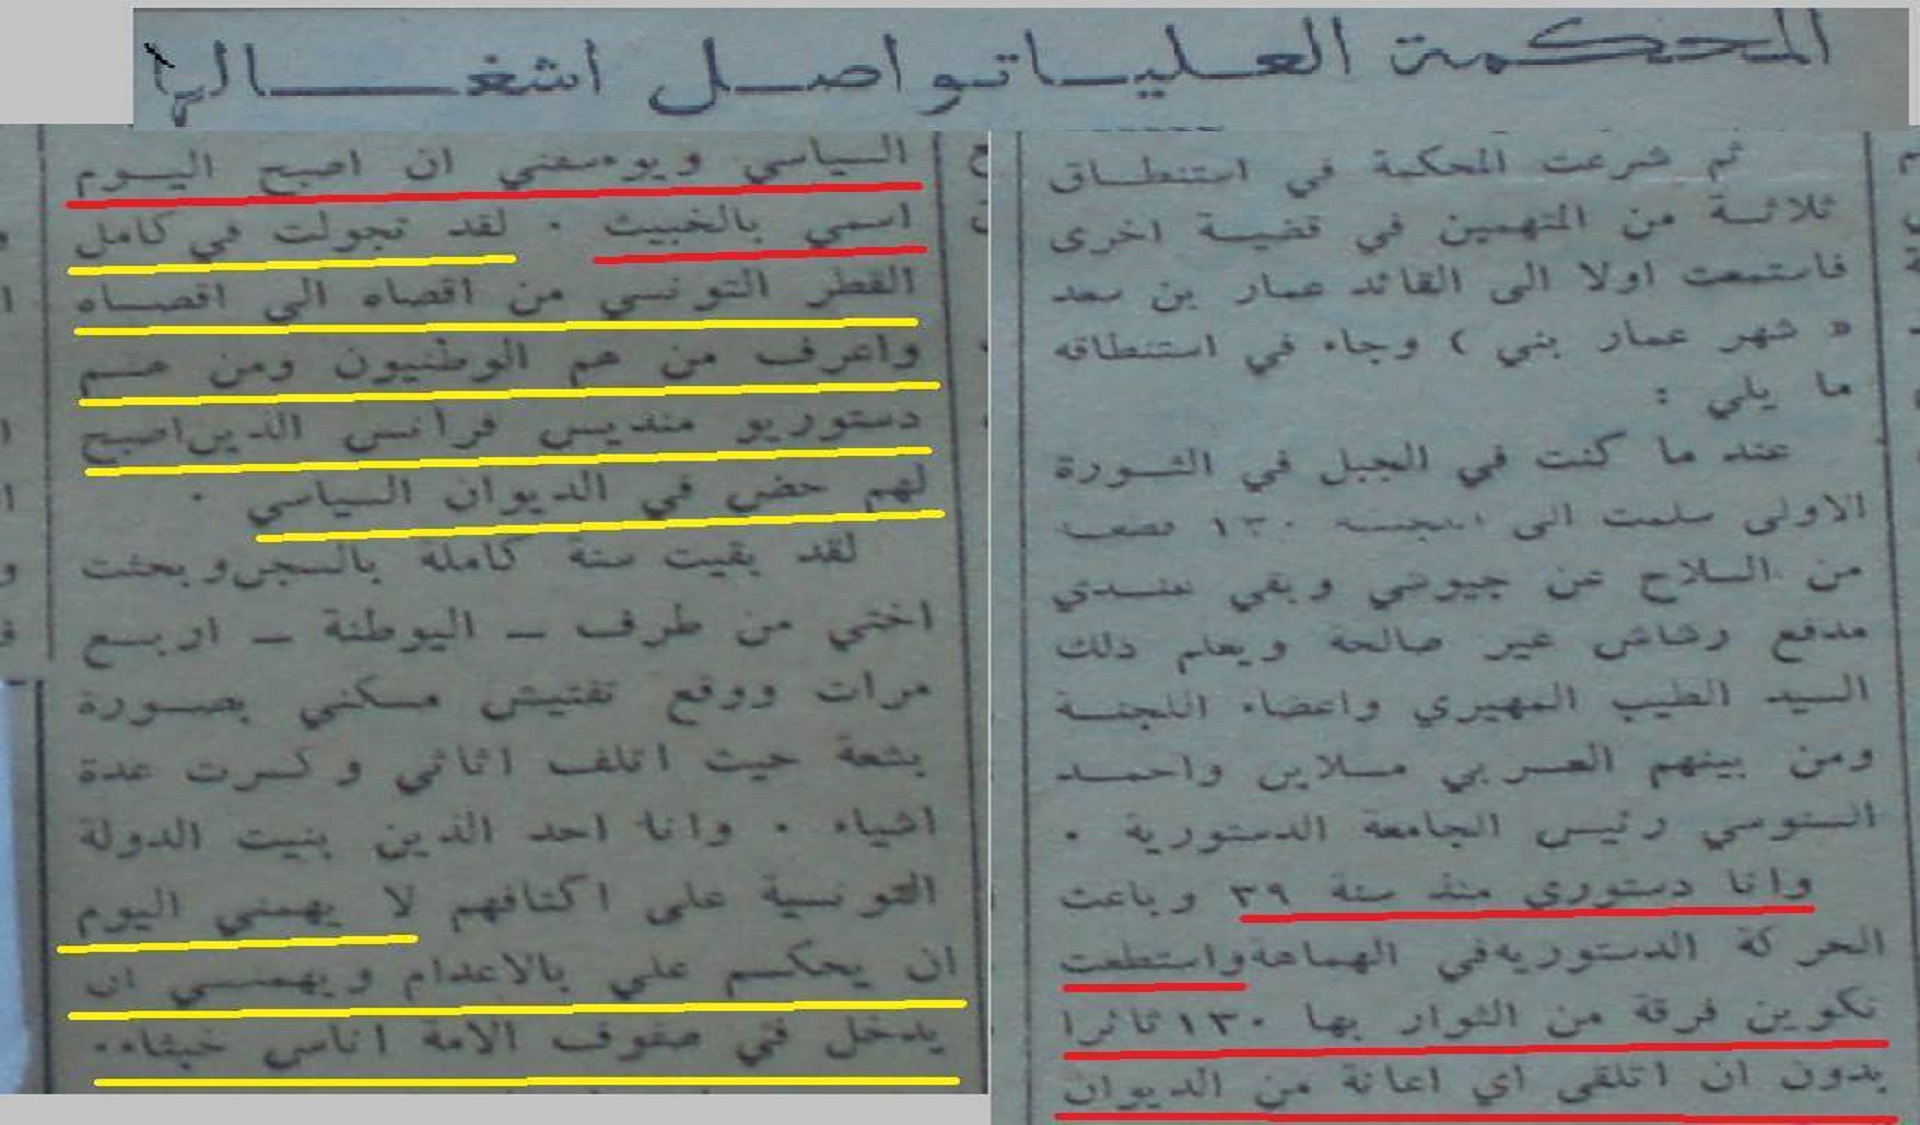 المحكمة العليا تواصل اشغالها
ثم شرعت المحكمة في استنطاق
ثلاثة من المتهمين في قضية اخرى
فاستمعت اولا الى القائد عمار بن سعد
« شهر عمار بني » وجاء في استنطاقه
ما يلي :
عند ما كنت في الجبل في الثورة
الاولى سلمت الى اللجنة ١٣٠ قطعة
من السلاح عن جيوشي وبقي عندي
مدفع رشاش غير صالحة ويعلم ذلك
السيد الطيب المهيري واعضاء اللجنة
ومن بينهم العربي ملاين واحمد
السنوسي رئيس الجامعة الدستورية .
وانا دستوري منذ سنة ٣٩ وباعث
الحركة الدستورية في الهمامة واستطعت
تكوين فرقة من الثوار بها ١٣٠ ثائرا
بدون ان اتلقى اي اعانة من الديوان
السياسي ويوسفني ان اصبح اليوم
اسمي بالخبيث . لقد تجولت في كامل
القطر التونسي من اقصاه الى اقصاه
واعرف من هم الوطنيون ومن هم
دستوريو منديس فرانس الذين اصبح
لهم حض في الديوان السياسي .
لقد بقيت سنة كامله بالسجن وبحثت
اختي من طرف - اليوطنة - اربع
مرات ووقع تفتيش مسكني بصورة
بشعة حيث اتلف اثاثي وكسرت عدة
اشياء . وانا احد الذين بنيت الدولة
التونسية على اكتافهم لا يهمني اليوم
ان يحكم علي بالاعدام ويهمني ان
يدخل في صفوف الامة اناس خبثاء..